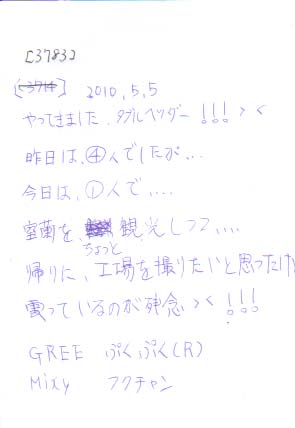 [3783]
[3714] 2010,5,5
やってきました、ダブルヘッダー!!!><
昨日は、④人でしたが、、、
今日は、①人で、、、、
室蘭を、観光しつつ、、、、
ちょっと
帰りに、工場を撮りたいと思ったけど
曇っているのが残念><!!!
GREE ぷくぷく(R)
Mixy フクチャン